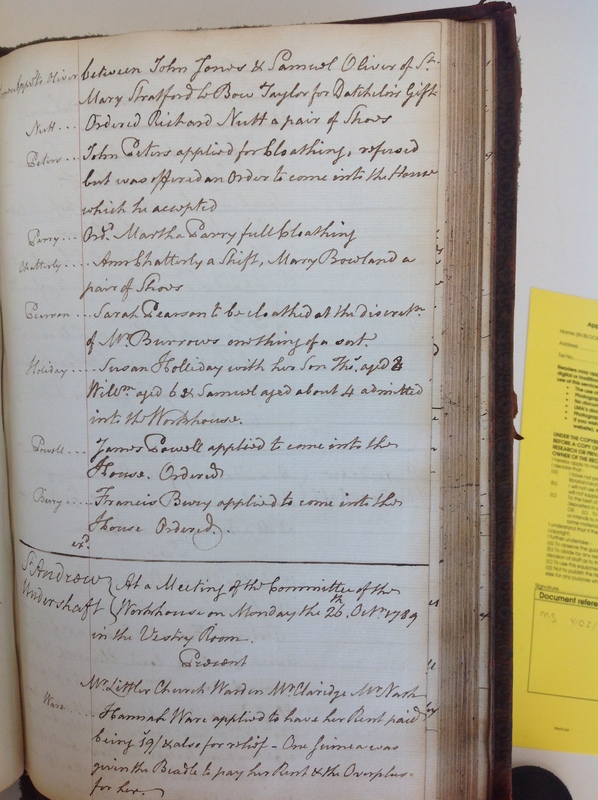 Oliver between John Jones & Samuel Oliver of St.
Mary Stratford le Bow Taylor for Datchelors Gift
Nutt ... Ordered Richard Nutt a pair of Shoes
Peters ... John Peters applied for Cloathing, refused
but was offered an Order to come into the House
which he accepted
Parry ... Ordd. Martha Parry full Cloathing
Chatterly ... Ann Chatterly a Shift, Mary Bowland a
pair of Shoes
Pearson ... Sarah Pearson to be cloathed at the discretn.
of Mr. Burrows one thing of a sort
Holiday ... Susan Holliday with her Son Thos. aged 8
Willm. aged 6 & Samuel aged about 4 admitted
into the Workhouse.
Powell ... James Powell applied to come into the
House. Ordered
Bury ... Francis Bury applied to come into the
House Ordered.
exd.
St. Andrew Undershaft
At a Meeting of the Committee of the
Workhouse on Monday the 26th. Octr. 1789
in the Vestry Room.
Present
Mr. Littler Church Warden Mr. Claridge Mr. Nash
Ware ... Hannah Ware applied to have her Rent paid
being 19/ & also for relief - One Guinea was
given the Beadle to pay her Rent & the Overplus
for her.
Address
UNDER THE COPYR
BEFORE A COPY
RESEARCH OR PRIV
OWNER OF THE REC
Signature
Document refere
MS